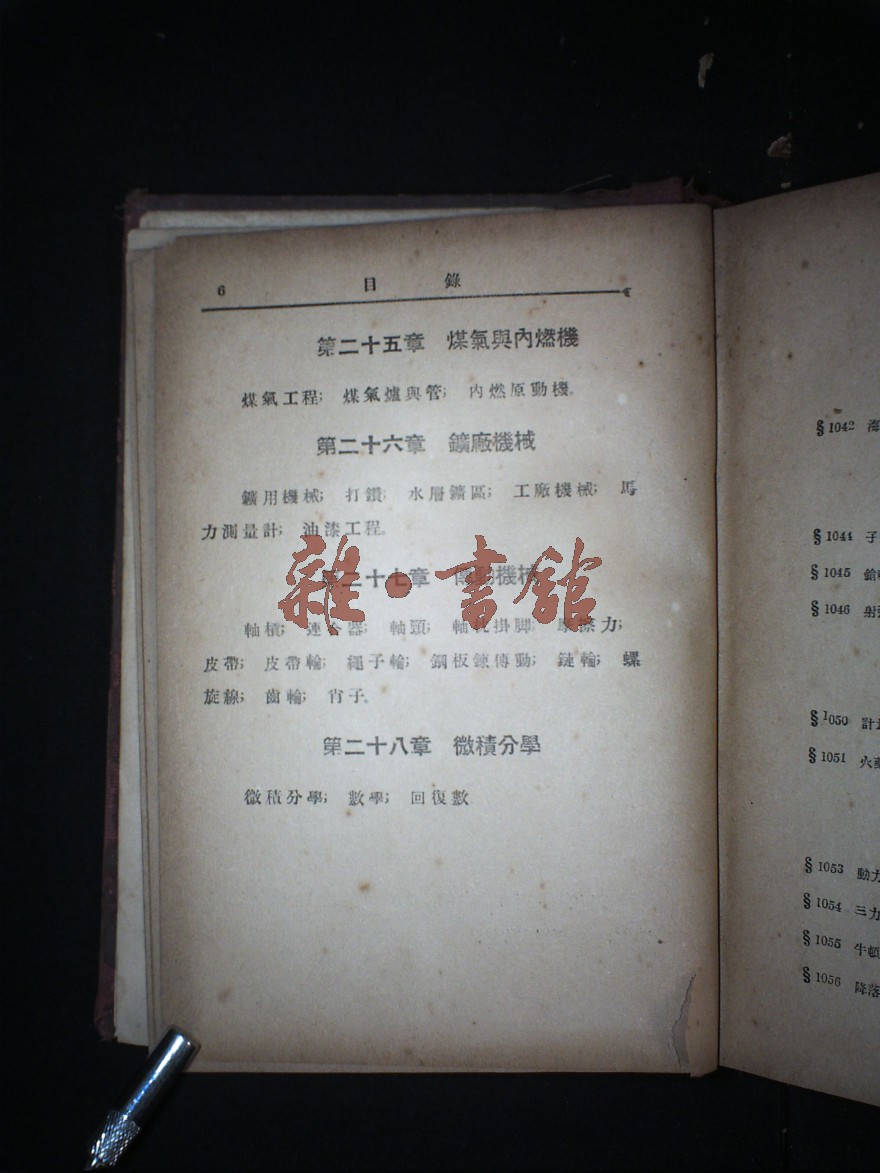 6 目錄
第二十五章 煤氣與內燃機
煤氣工程; 煤氣爐與管; 內燃原動機。
第二十六章 鑛廠機械
鑛用機械; 打鑽; 水層鑛區; 工廠機械; 馬
力測量計; 油漆工程。
第二十七章 傳動機械
軸槓; 連合器; 軸頸; 軸枕掛脚; 摩擦力;
皮帶; 皮帶輪; 繩子輪; 鋼板鍊傳動; 鏈輪; 螺
旋線; 齒輪; 肖子。
第二十八章 微積分學
微積分學; 數學; 回復數
雜·書館
§ 1042 海
§ 1044 子
§ 1045
§ 1046 射
§ 1050 計
§ 1051 火
§ 1053 動力
§ 1054 三力
§ 1055 牛頓
§ 1056 降落